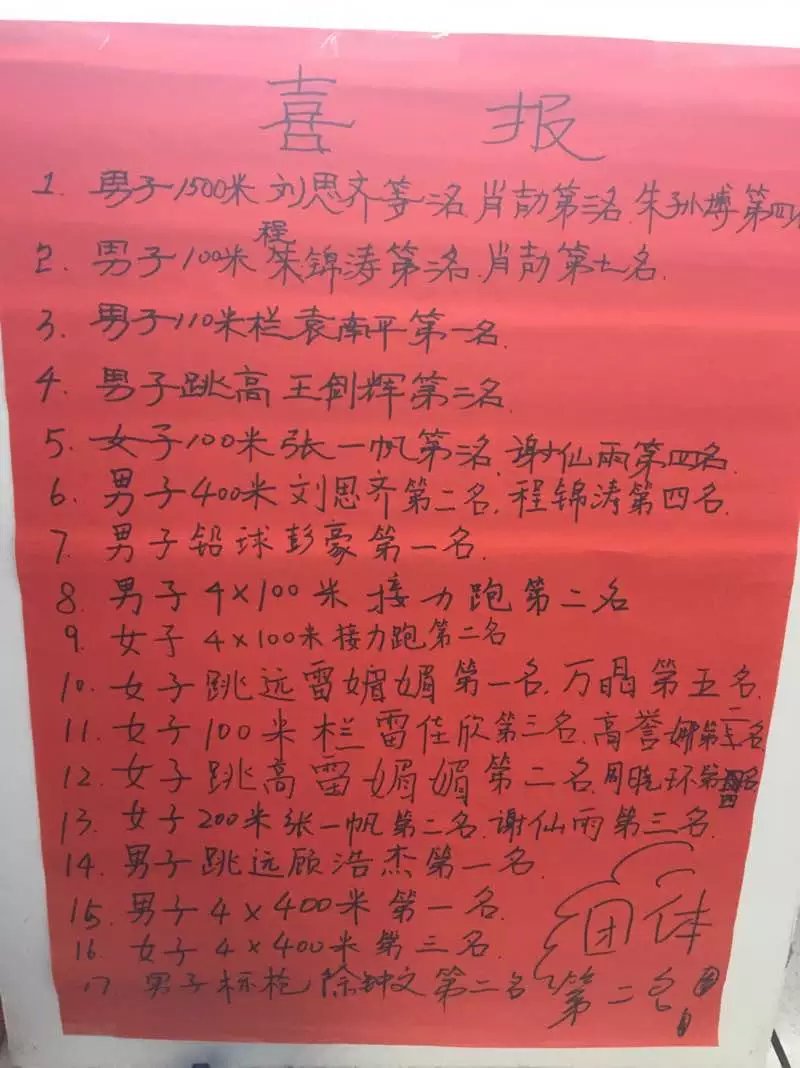 喜报
1. 男子1500米刘思齐第二名.肖劼第三名.朱孙博第四名
程
2. 男子100米朱锦涛第二名.肖劼第七名.
3. 男子110米栏袁南平第一名.
4. 男子跳高王剑辉第二名.
5. 女子100米张一帆第二名.谢仙雨第四名.
6. 男子400米刘思齐第二名.程锦涛第四名.
7. 男子铅球彭豪第一名.
8. 男子4×100米接力跑第二名
9. 女子4×100米接力跑第二名
10. 女子跳远雷媚媚第一名.万晶第五名.
11. 女子100米栏雷佳欣第三名.高誉娜第二名
12. 女子跳高雷媚媚第二名.周晓环第四名
13. 女子200米张一帆第二名.谢仙雨第三名.
14. 男子跳远顾浩杰第一名.
15. 男子4×400米第一名.
16. 女子4×400米第三名.
17 男子标枪徐钟文第二名
团体
第二名